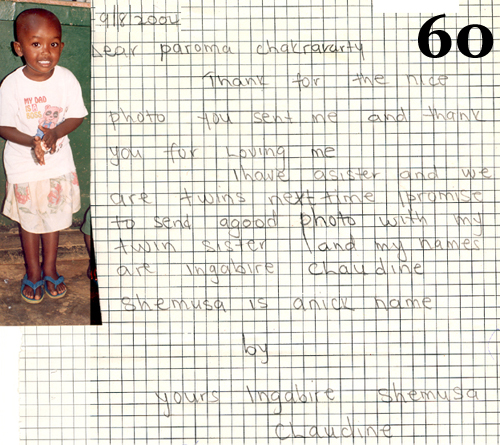 9/8/2004
60
Dear paroma chakravarty
Thank for the nice
photo you sent me and thank
you for Loving me
I have asister and we
are twins next time Ipromise
to send agood photo with my
twin sister land my names
are Ingabire Chaudine
Shemusa is anick name
by
yours Ingabire Shemusa
Chaudine
MY DAD